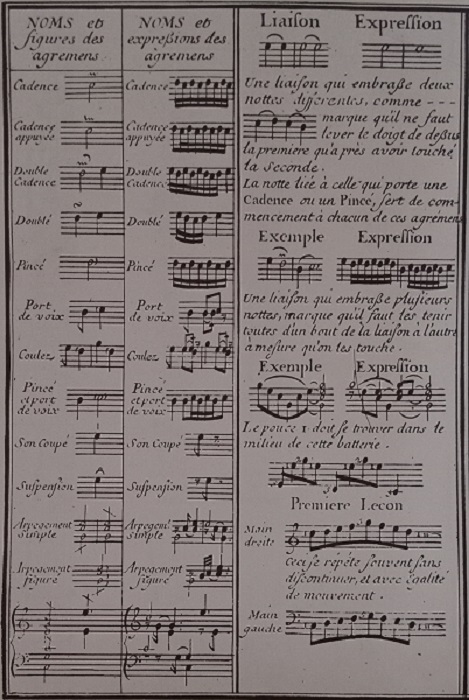 NOMS et
figures des
agremens
Cadence
Cadence
appuyée
Double
Cadence
Doublé
Pincé
Port
de voix
Coulez
Pincé
et port
de voix
Son Coupé
Suspension
Arpegement
simple
Arpegement
figuré
NOMS et
expreßions des
agremens
Cadence
Cadence
appuyée
Double
Cadence
Doublé
Pincé
Port
de voix
Coulez
Pincé
et port
de voix
Son Coupé
Suspension
Arpegement
simple
Arpegement
figuré
Liaison Expression
Une liaison qui embraße deux
nottes diferentes, comme ---
marque qu'il ne faut
lever le doigt de deßus
la premiere qu'après avoir touché
la seconde.
La notte liée à celle qui porte une
Cadence ou un Pincé, sert de com-
mencement à chacun de ces agrémens.
Exemple Expression
Une liaison qui embraße plusieurs
nottes, marque qu'il faut les tenir
toutes d'un bout de la liaison à l'autre
à mesure qu'on les touche.
Exemple Expression
Le pouce 1 doit se trouver dans le
milieu de cette batterie.
Premiere Lecon
Main
droite
Ceci se répéte souvent sans
discontinuer, et avec égalité
de mouvement.
Main
gauche